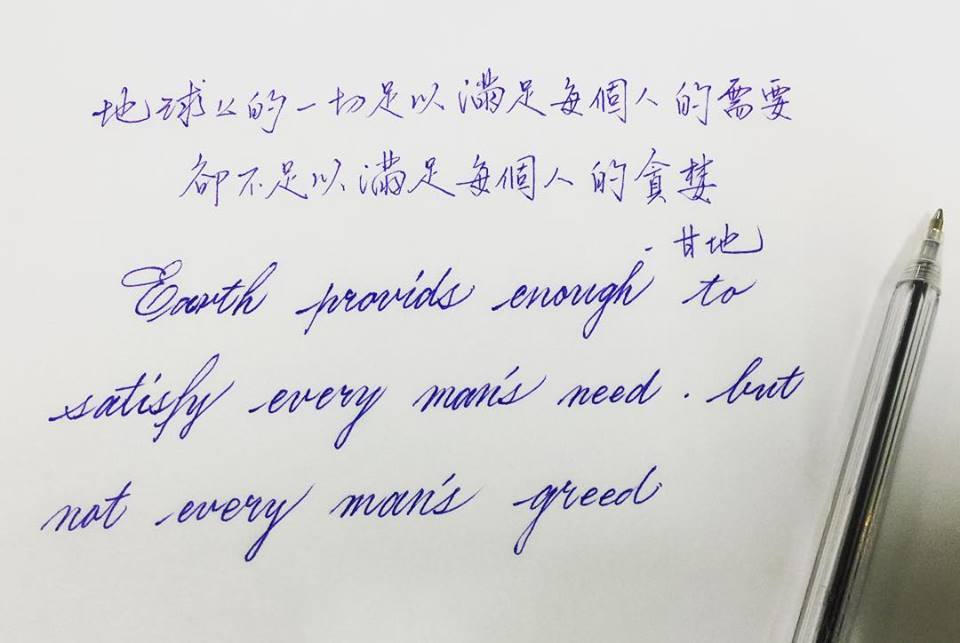 地球上的一切足以滿足每個人的需要
卻不足以滿足每個人的貪婪
- 甘地
Earth provids enough to
satisfy every man's need. but
not every man's greed